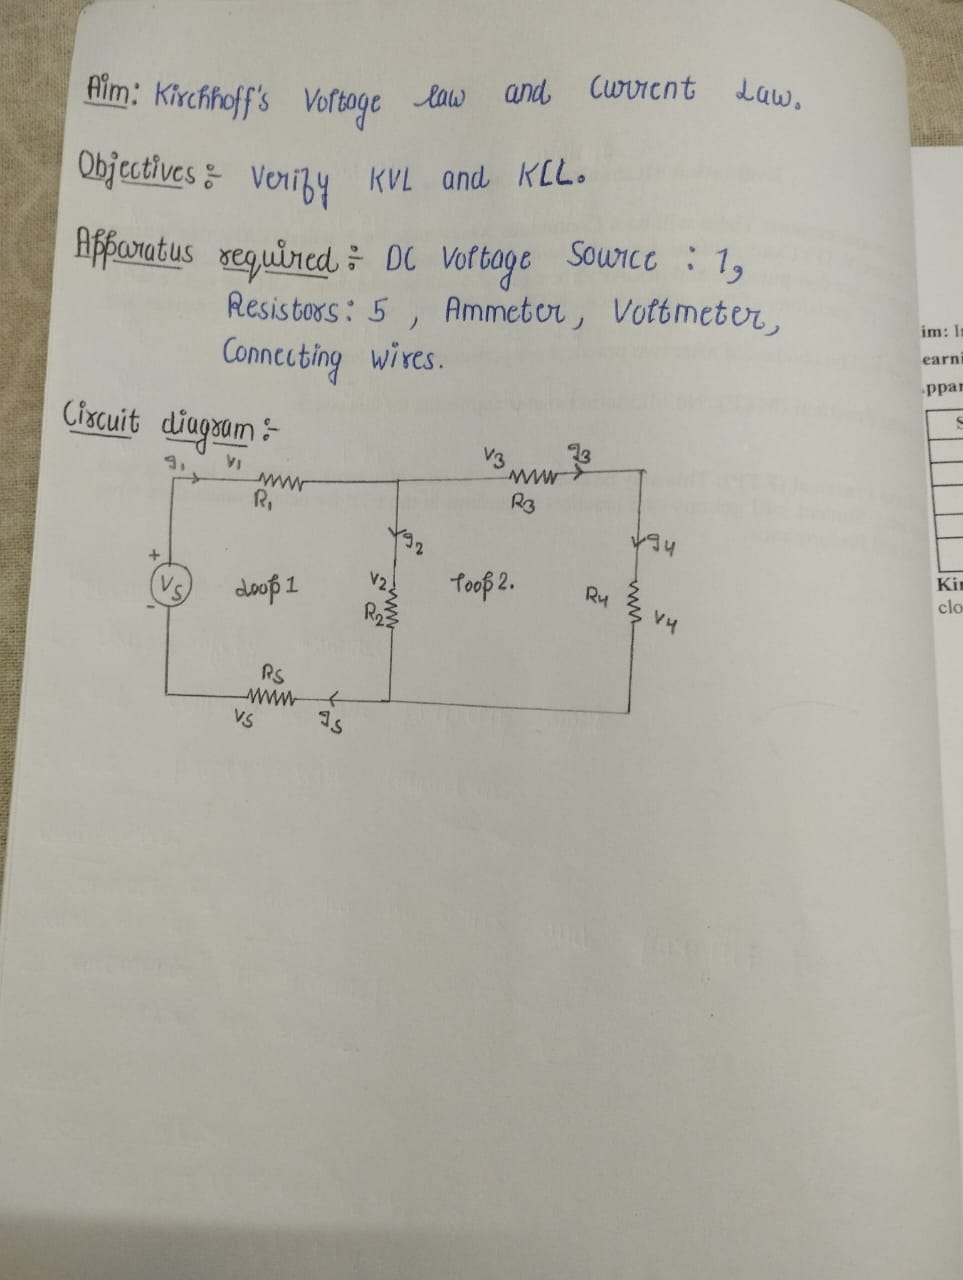 Aim: Kirchhoff's Voltage law and Current Law.
Objectives:- Verify KVL and KCL.
Apparatus required:- DC Voltage Source : 1,
Resistors: 5 , Ammeter, Voltmeter,
Connecting wires.
Circuit diagram:-
I1 V1 V3 I3
R1 R3
I2 I4
+
VS Loop 1 V2 loop 2. R4
- R2 V4
R5
V5 I5
im:
earni
ppar
S
Kir
clo